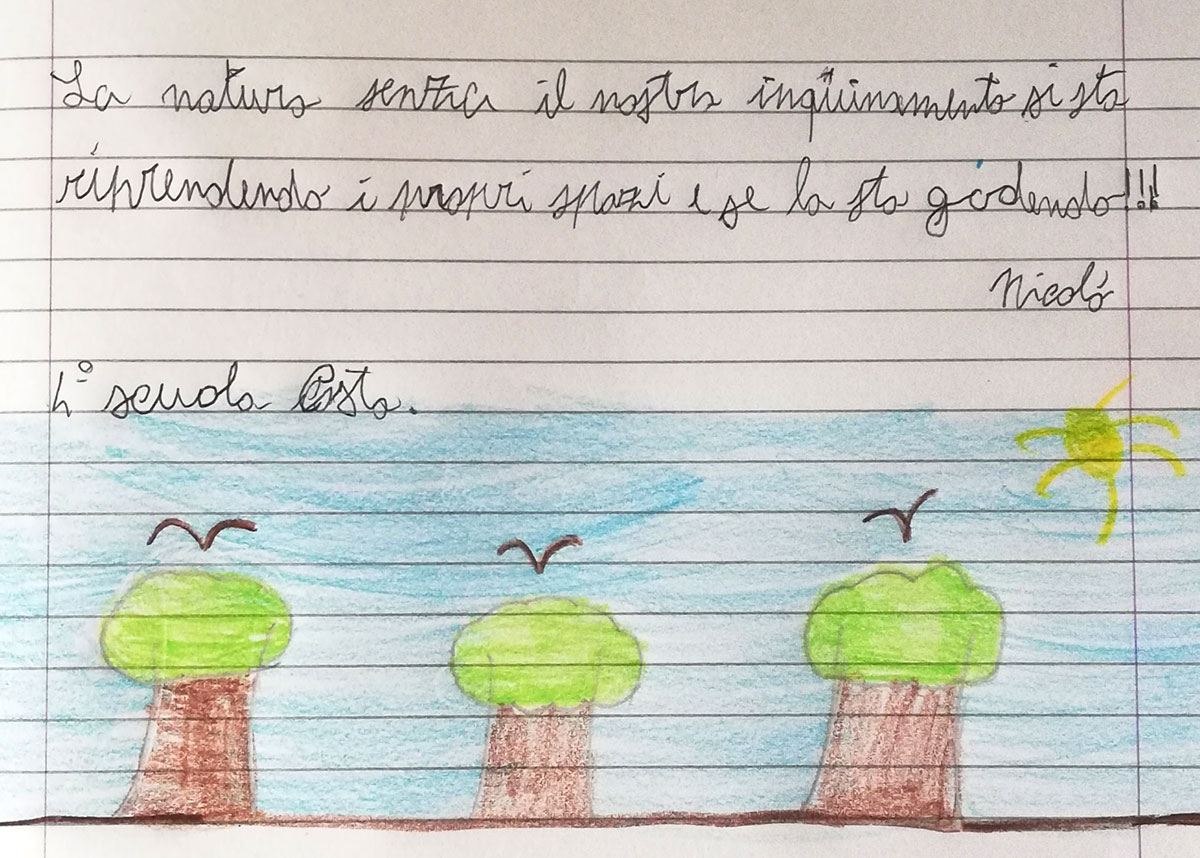 La natura senza il nostro inquinamento si sta
riprendendo i propri spazi e se la sta godendo!!!
Nicolò
4° scuola Costa.